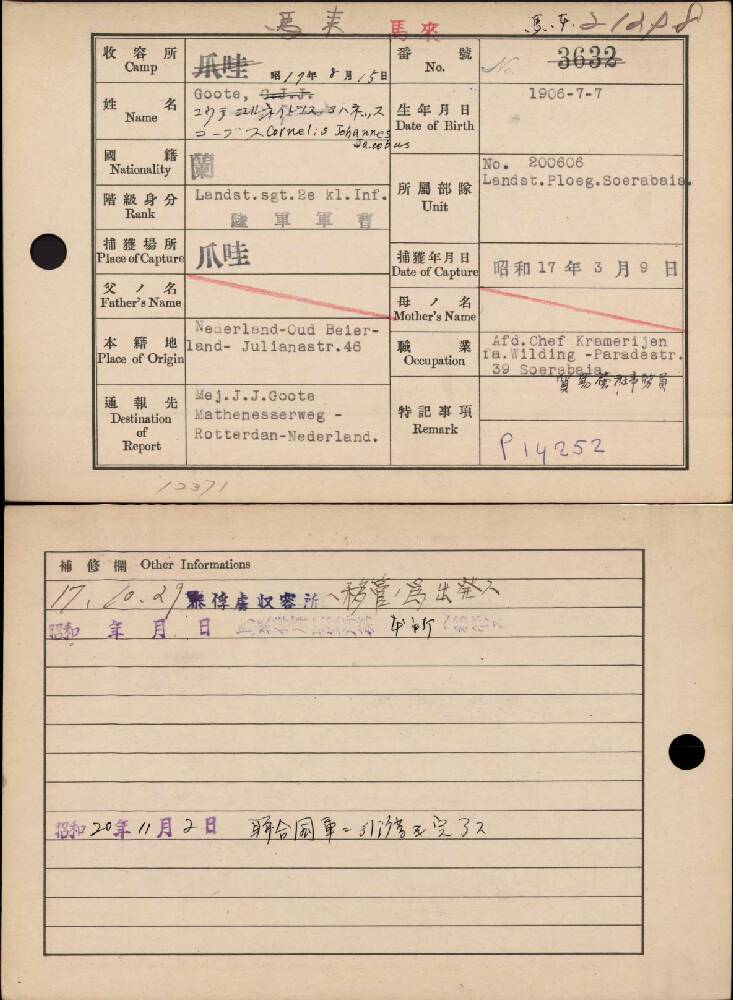 馬来
馬來
馬.本.
收容所
Camp
爪哇
昭17年8月15日
番號
No.
No.
3632
姓名
Name
Goote, C.J.J.
コーブス Cornelis Johannes
Jacobus
生年月日
Date of Birth
1906-7-7
國籍
Nationality
蘭
所屬部隊
Unit
No. 200606
Landst.Ploeg.Soerabaia.
階級身分
Rank
Landst.sgt.2e kl.Inf.
陸軍軍曹
捕獲場所
Place of Capture
爪哇
捕獲年月日
Date of Capture
昭和17年3月9日
父ノ名
Father's Name
母ノ名
Mother's Name
本籍地
Place of Origin
Nederland-Oud Beier-
land- Julianastr.46
職業
Occupation
Afd.Chef Kramerijen
fa.Wilding -Paradestr.
39 Soerabaia.
貿易会社事務員
通報先
Destination
of
Report
Mej.J.J.Goote
Mathenesserweg -
Rotterdan-Nederland.
特記事項
Remark
P14252
12371
補修欄 Other Informations
17.10.29 俘虜収容所ヘ移管ノ為出発ス
昭和 年 月 日
昭和20年11月2日 聯合国軍ニ引渡シ完了ス